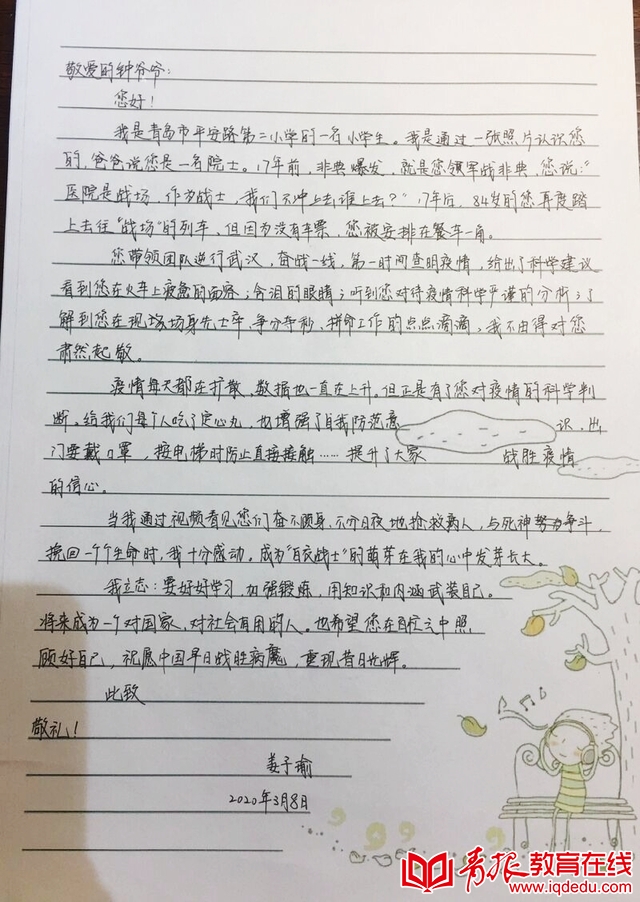 敬爱的钟爷爷：
您好！
我是青岛市平安路第二小学的一名小学生。我是通过一张照片认识您
的，爸爸说您是一名院士。17年前，非典爆发，就是您领军战非典，您说：“
医院是战场，作为战士，我们不冲上去谁上去？”17年后，84岁的您再度踏
上去往“战场”的列车，但因为没有车票，您被安排在餐车一角。
您带领团队逆行武汉，奋战一线，第一时间查明疫情，给出了科学建议
看到您在火车上疲惫的面容；含泪的眼睛；听到您对待疫情科学严谨的分析；了
解到您在现场场身先士卒、争分夺秒、拼命工作的点点滴滴，我不由得对您
肃然起敬。
疫情每天都在扩散，数据也一直在上升。但正是有了您对疫情的科学判
断。给我们每个人吃了定心丸，也增强了自我防范意识，出
门要戴口罩，按电梯时防止直接接触……提升了大家战胜疫情
的信心。
当我通过视频看见您们奋不顾身、不分日夜地抢救病人，与死神努力争斗，
挽回一个个生命时，我十分感动。成为“白衣战士”的萌芽在我的心中发芽长大。
我立志：要好好学习，加强锻炼，用知识和内涵武装自己。
将来成为一个对国家、对社会有用的人。也希望您在百忙之中照
顾好自己，祝愿中国早日战胜病魔，重现昔日光辉。
此致
敬礼！
姜子瑜
2020年3月8日
青报教育在线
www.iqdedu.com